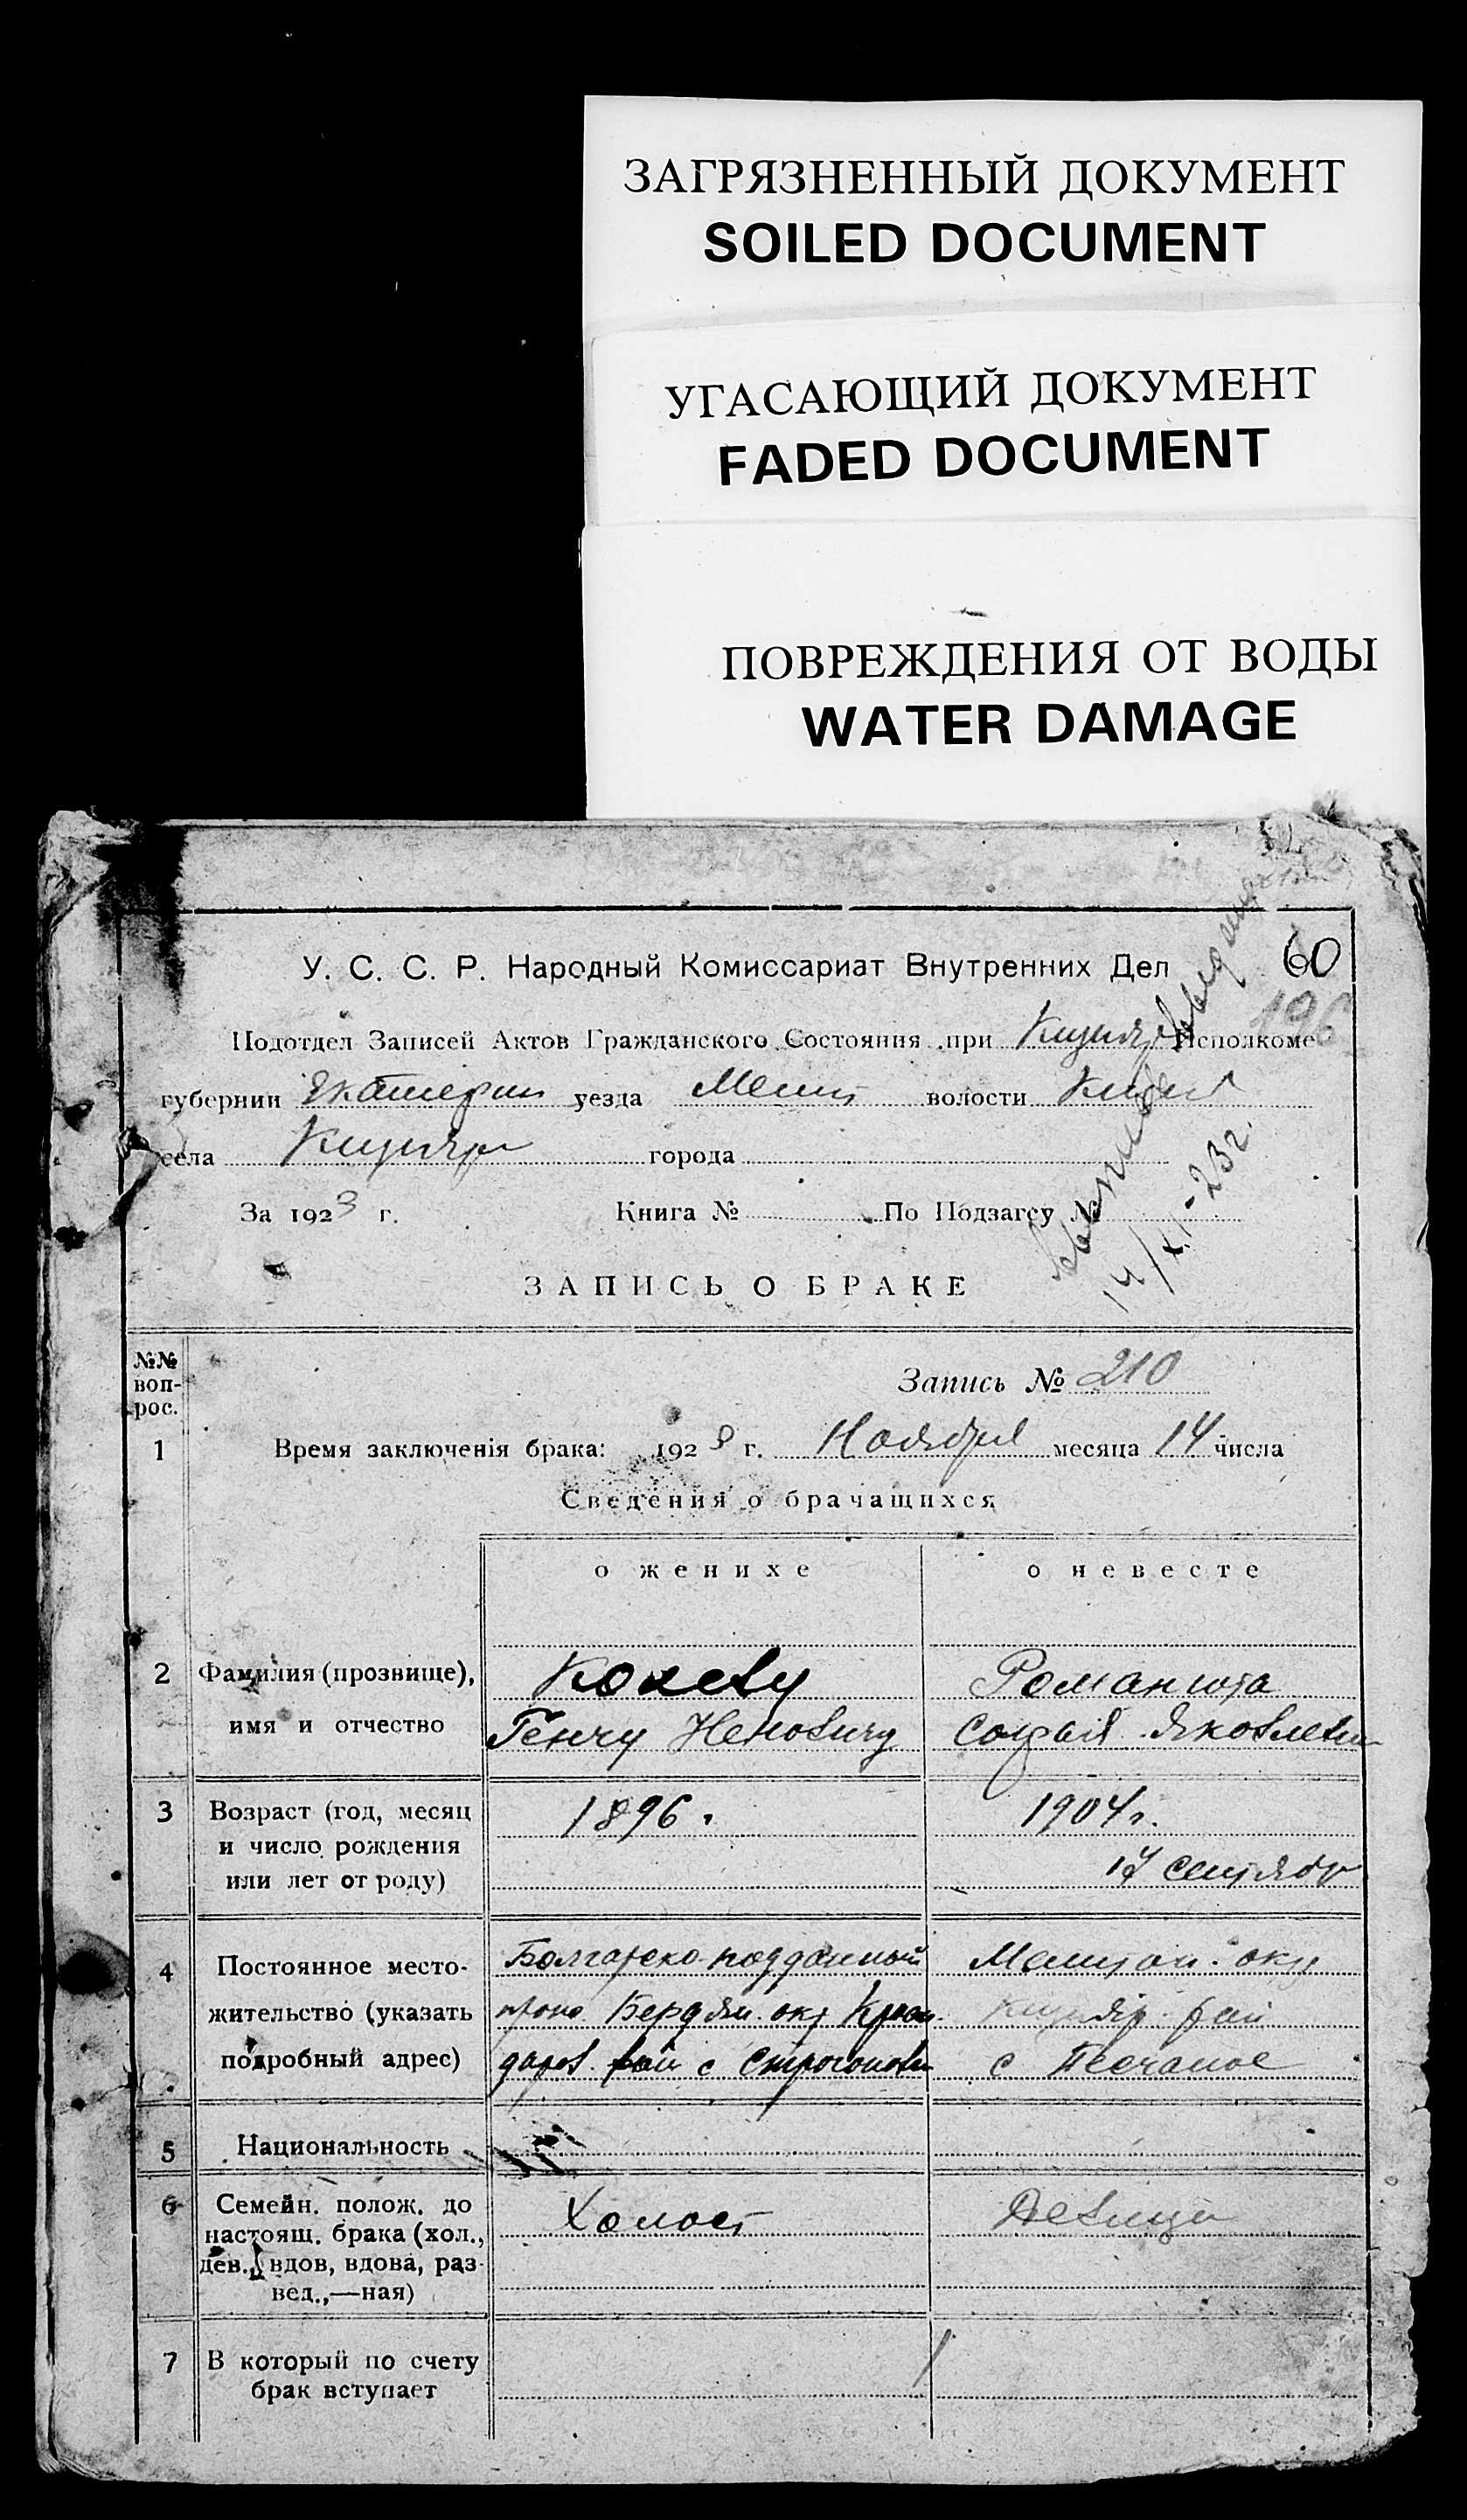 ЗАГРЯЗНЕННЫЙ ДОКУМЕНТ
SOILED DOCUMENT
УГАСАЮЩИЙ ДОКУМЕНТ
FADED DOCUMENT
ПОВРЕЖДЕНИЯ ОТ ВОДЫ
WATER DAMAGE
У. С. С. Р. Народный Комиссариат Внутренних Дел 60
196
Подотдел Записей Актов Гражданского Состояния при Исполкоме
губернии Екатерин уезда Мелит волости
села города
За 1923 г. Книга № По Подзагсу №
14/XI-23г.
ЗАПИСЬ О БРАКЕ
№№ вопрос.
Запись № 210
1 Время заключенія брака: 1923 г. Ноября месяца 14 числа
Сведения о брачащихся
о женихе о невесте
2 Фамилия (прозвище), Колеву Романюта
имя и отчество Генчу Неновичу Софья Яковлевн
3 Возраст (год, месяц 1896. 1904г.
и число рождения
или лет от роду) 17 сентябр
4 Постоянное место- Болгарско-подданный Мелитоп. окр
жительство (указать Бердян. окр рай
подробный адрес) рай с Строгоновк с Песчаное
5 Национальность
6 Семейн. полож. до Холост Девица
настоящ. брака (хол.,
дев., вдов, вдова, раз-
вед.,—ная)
7 В который по счету 1
брак вступает